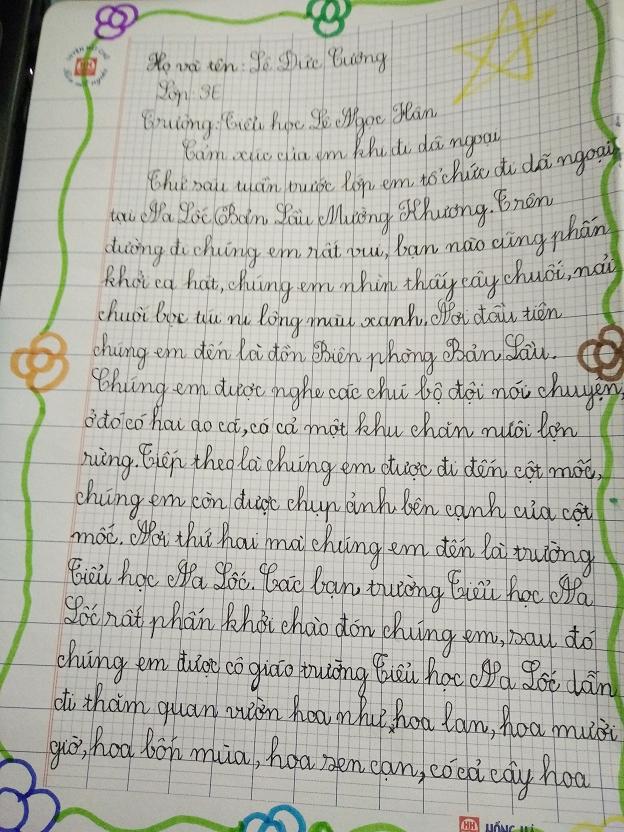 Họ và tên: Lê Đức Cường
Lớp: 3E
Trường: Tiểu học Lê Ngọc Hân
Cảm xúc của em khi đi dã ngoại
Thứ sáu tuần trước lớp em tổ chức đi dã ngoại
tại Na Lốc Bản Lầu Mường Khương. Trên
đường đi chúng em rất vui, bạn nào cũng phấn
khởi ca hát, chúng em nhìn thấy cây chuối, nải
chuối bọc túi ni lông màu xanh. Nơi đầu tiên
chúng em đến là đồn Biên phòng Bản Lầu.
Chúng em được nghe các chú bộ đội nói chuyện,
ở đó có hai ao cá, có cả một khu chăn nuôi lợn
rừng. Tiếp theo là chúng em được đi đến cột mốc,
chúng em còn được chụp ảnh bên cạnh của cột
mốc. Nơi thứ hai mà chúng em đến là trường
Tiểu học Na Lốc. Các bạn trường Tiểu học Na
Lốc rất phấn khởi chào đón chúng em, sau đó
chúng em được cô giáo trường Tiểu học Na Lốc dẫn
đi thăm quan vườn hoa như hoa lan, hoa mười
giờ, hoa bốn mùa, hoa sen cạn, có cả cây hoa
HH